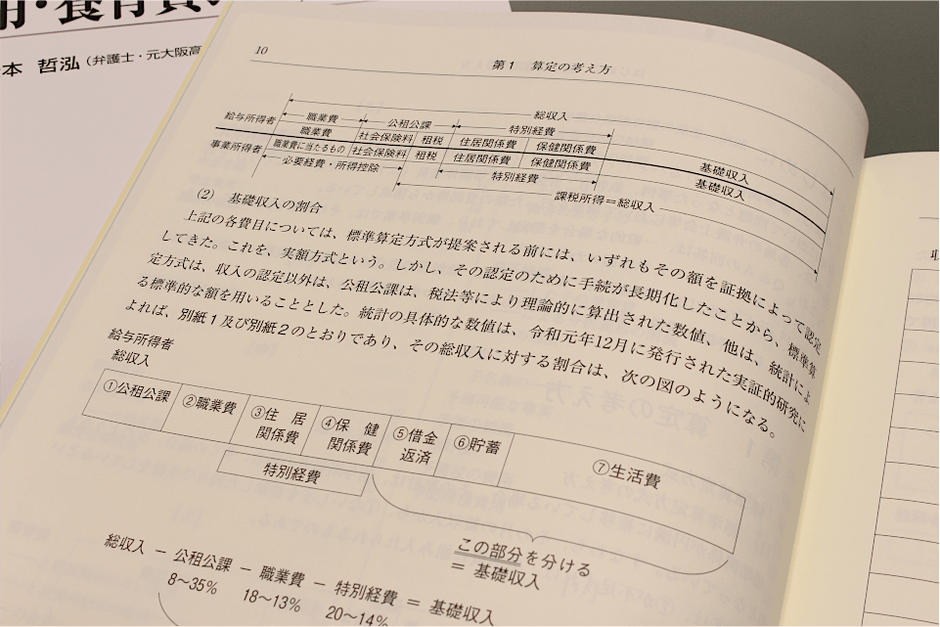 用・養育費
本 哲泓（弁護士・元大阪高
10
第1 算定の考え方
総収入
給与所得者 職業費 公租公課 特別経費
職業費 社会保険料 租税 住居関係費 保健関係費 基礎収入
事業所得者 職業費に当たるもの 社会保険料 租税 住居関係費 保健関係費 基礎収入
必要経費・所得控除 特別経費
課税所得＝総収入
(2) 基礎収入の割合
上記の各費目については、標準算定方式が提案される前には、いずれもその額を証拠によって認定
してきた。これを、実額方式という。しかし、その認定のために手続が長期化したことから、標準算
定方式は、収入の認定以外は、公租公課は、税法等により理論的に算出された数値、他は、統計によ
る標準的な額を用いることとした。統計の具体的な数値は、令和元年12月に発行された実証的研究に
よれば、別紙1及び別紙2のとおりであり、その総収入に対する割合は、次の図のようになる。
給与所得者
総収入
①公租公課 ②職業費 ③住居関係費 ④保健関係費 ⑤借金返済 ⑥貯蓄 ⑦生活費
特別経費
この部分を分ける
＝ 基礎収入
総収入 − 公租公課 − 職業費 − 特別経費 ＝ 基礎収入
8〜35% 18〜13% 20〜14%